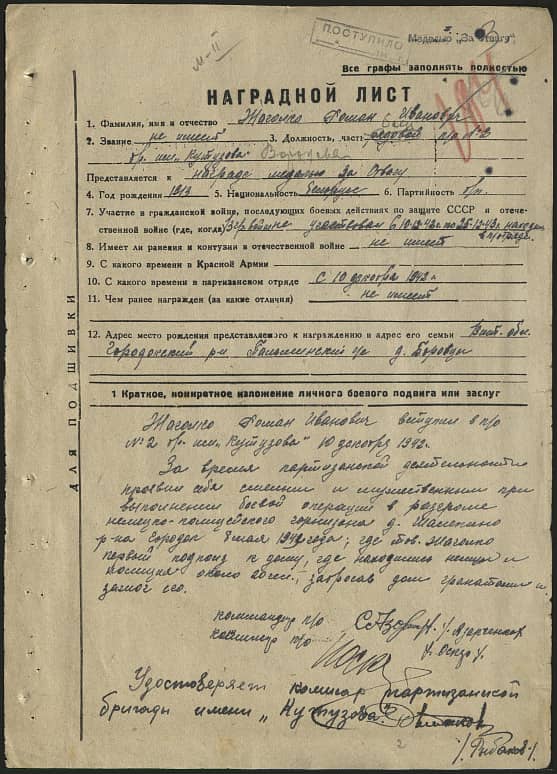 М-II
ПОСТУПИЛО
Медалью „За Отвагу"
Все графы заполнять полностью
НАГРАДНОЙ ЛИСТ
1. Фамилия, имя и отчество Жаголко Роман Иванович
2. Звание не имеет 3. Должность, часть рядовой п/о №2
бр. им. Кутузова
Представляется к награде медалью За Отвагу
4. Год рождения 1913 5. Национальность белорус 6. Партийность б/п.
7. Участие в гражданской войне, последующих боевых действиях по защите СССР и отече-
ственной войне (где, когда) участвовал с 10-12-42г. по 25-12-43г. находясь
в п/отряде.
8. Имеет ли ранения и контузии в отечественной войне не имеет
9. С какого времени в Красной Армии
10. С какого времени в партизанском отряде с 10 декабря 1942 г.
11. Чем ранее награжден (за какие отличия) не имеет
12. Адрес место рождения представляемого к награждению и адрес его семьи Вит. обл.
Городокский р-н с/с д. Боровцы
ДЛЯ ПОДШИВКИ
1 Краткое, конкретное изложение личного боевого подвига или заслуг
Жаголко Роман Иванович вступил в п/о
№2 бр. им. „Кутузова" 10 декабря 1942г.
За время партизанской деятельности
проявил себя смелым и мужественным при
выполнении боевой операции в разгроме
немецко-полицейского гарнизона д.
р-на Городок 8 мая года; где тов. Жаголко
первый подполз к дому, где находились немцы и
полиция около 20 чел., забросав дом гранатами и
зажог его.
командир п/о /Азарченков
комиссар п/о
Удостоверяет комиссар партизанской
бригады имени „Кутузова"
/Рыбаков/
2